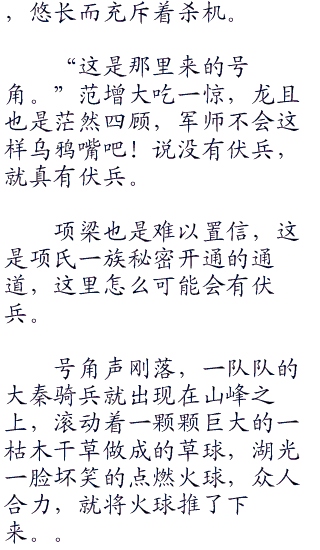 ，悠长而充斥着杀机。
“这是那里来的号
角。”范增大吃一惊，龙且
也是茫然四顾，军师不会这
样乌鸦嘴吧！说没有伏兵，
就真有伏兵。
项梁也是难以置信，这
是项氏一族秘密开通的通
道，这里怎么可能会有伏
兵。
号角声刚落，一队队的
大秦骑兵就出现在山峰之
上，滚动着一颗颗巨大的一
枯木干草做成的草球，湖光
一脸坏笑的点燃火球，众人
合力，就将火球推了下
来。。